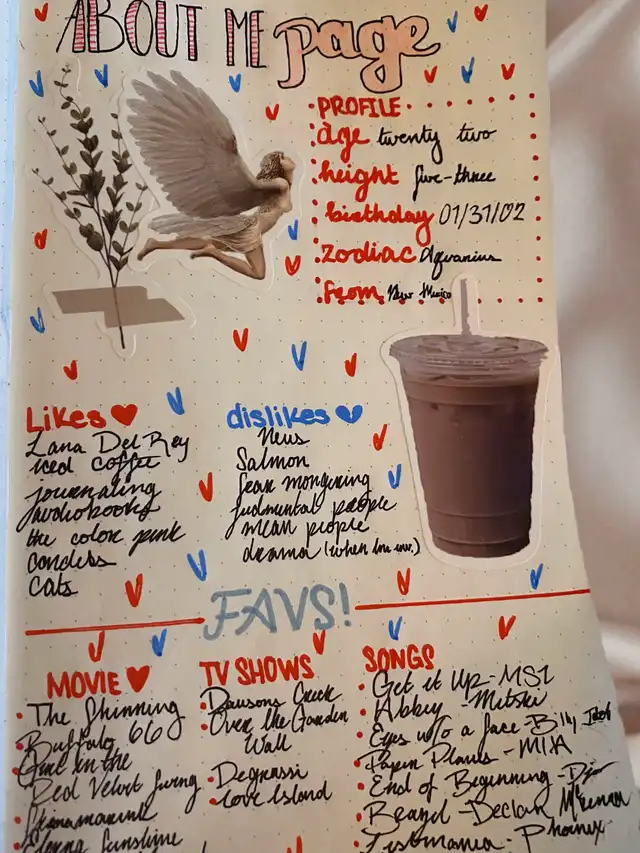 ABOUT ME page
PROFILE
age twenty two
height five-three
birthday 01/31/02
zodiac Aquarius
From New Mexico
Likes
Lana Del Rey
iced coffee
journaling
audiobooks
the color pink
candles
Cats
dislikes
News
Salmon
fear mongering
judmental people
mean people
drama (when
FAVS!
MOVIE
The Shinning
Buffalo 66
Girl in the
Red Velvet Swing
Sunshine
TV SHOWS
Dawsons Creek
Over the Garden
Wall
Degrassi
Love Island
SONGS
Get it Up-MSI
Abbey - Mitski
Eyes w/o a face-Billy Idol
Paper Planes - MIA
End of Beginning - Djo
Brazil - Declan McKenna
- Phoenix